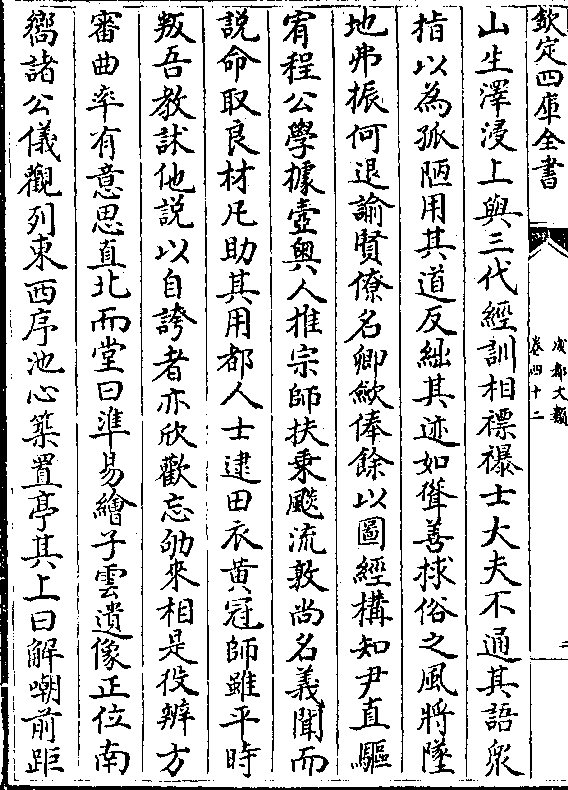 欽定四庫全書
成都文類
卷四十二
二
山生澤浸上與三代經訓相襮士大夫不通其語衆
指以為孤陋用其道反絀其迹如聳善捄俗之風將墜
地弗振何退諭賢僚名卿斂俸餘以圖經構知尹直驅
宥程公學據壼奧人推宗師扶乘颷流敦尚名義聞而
説命取良材凡助其用都人士逮田衣黄冠師雖平時
叛吾教訹他説以自誇者亦欣歡忘劬來相是役辨方
審曲率有意思直北而堂曰準易繪子雲遺像正位南
嚮諸公儀觀列東西序池心築置亭其上曰解嘲前距